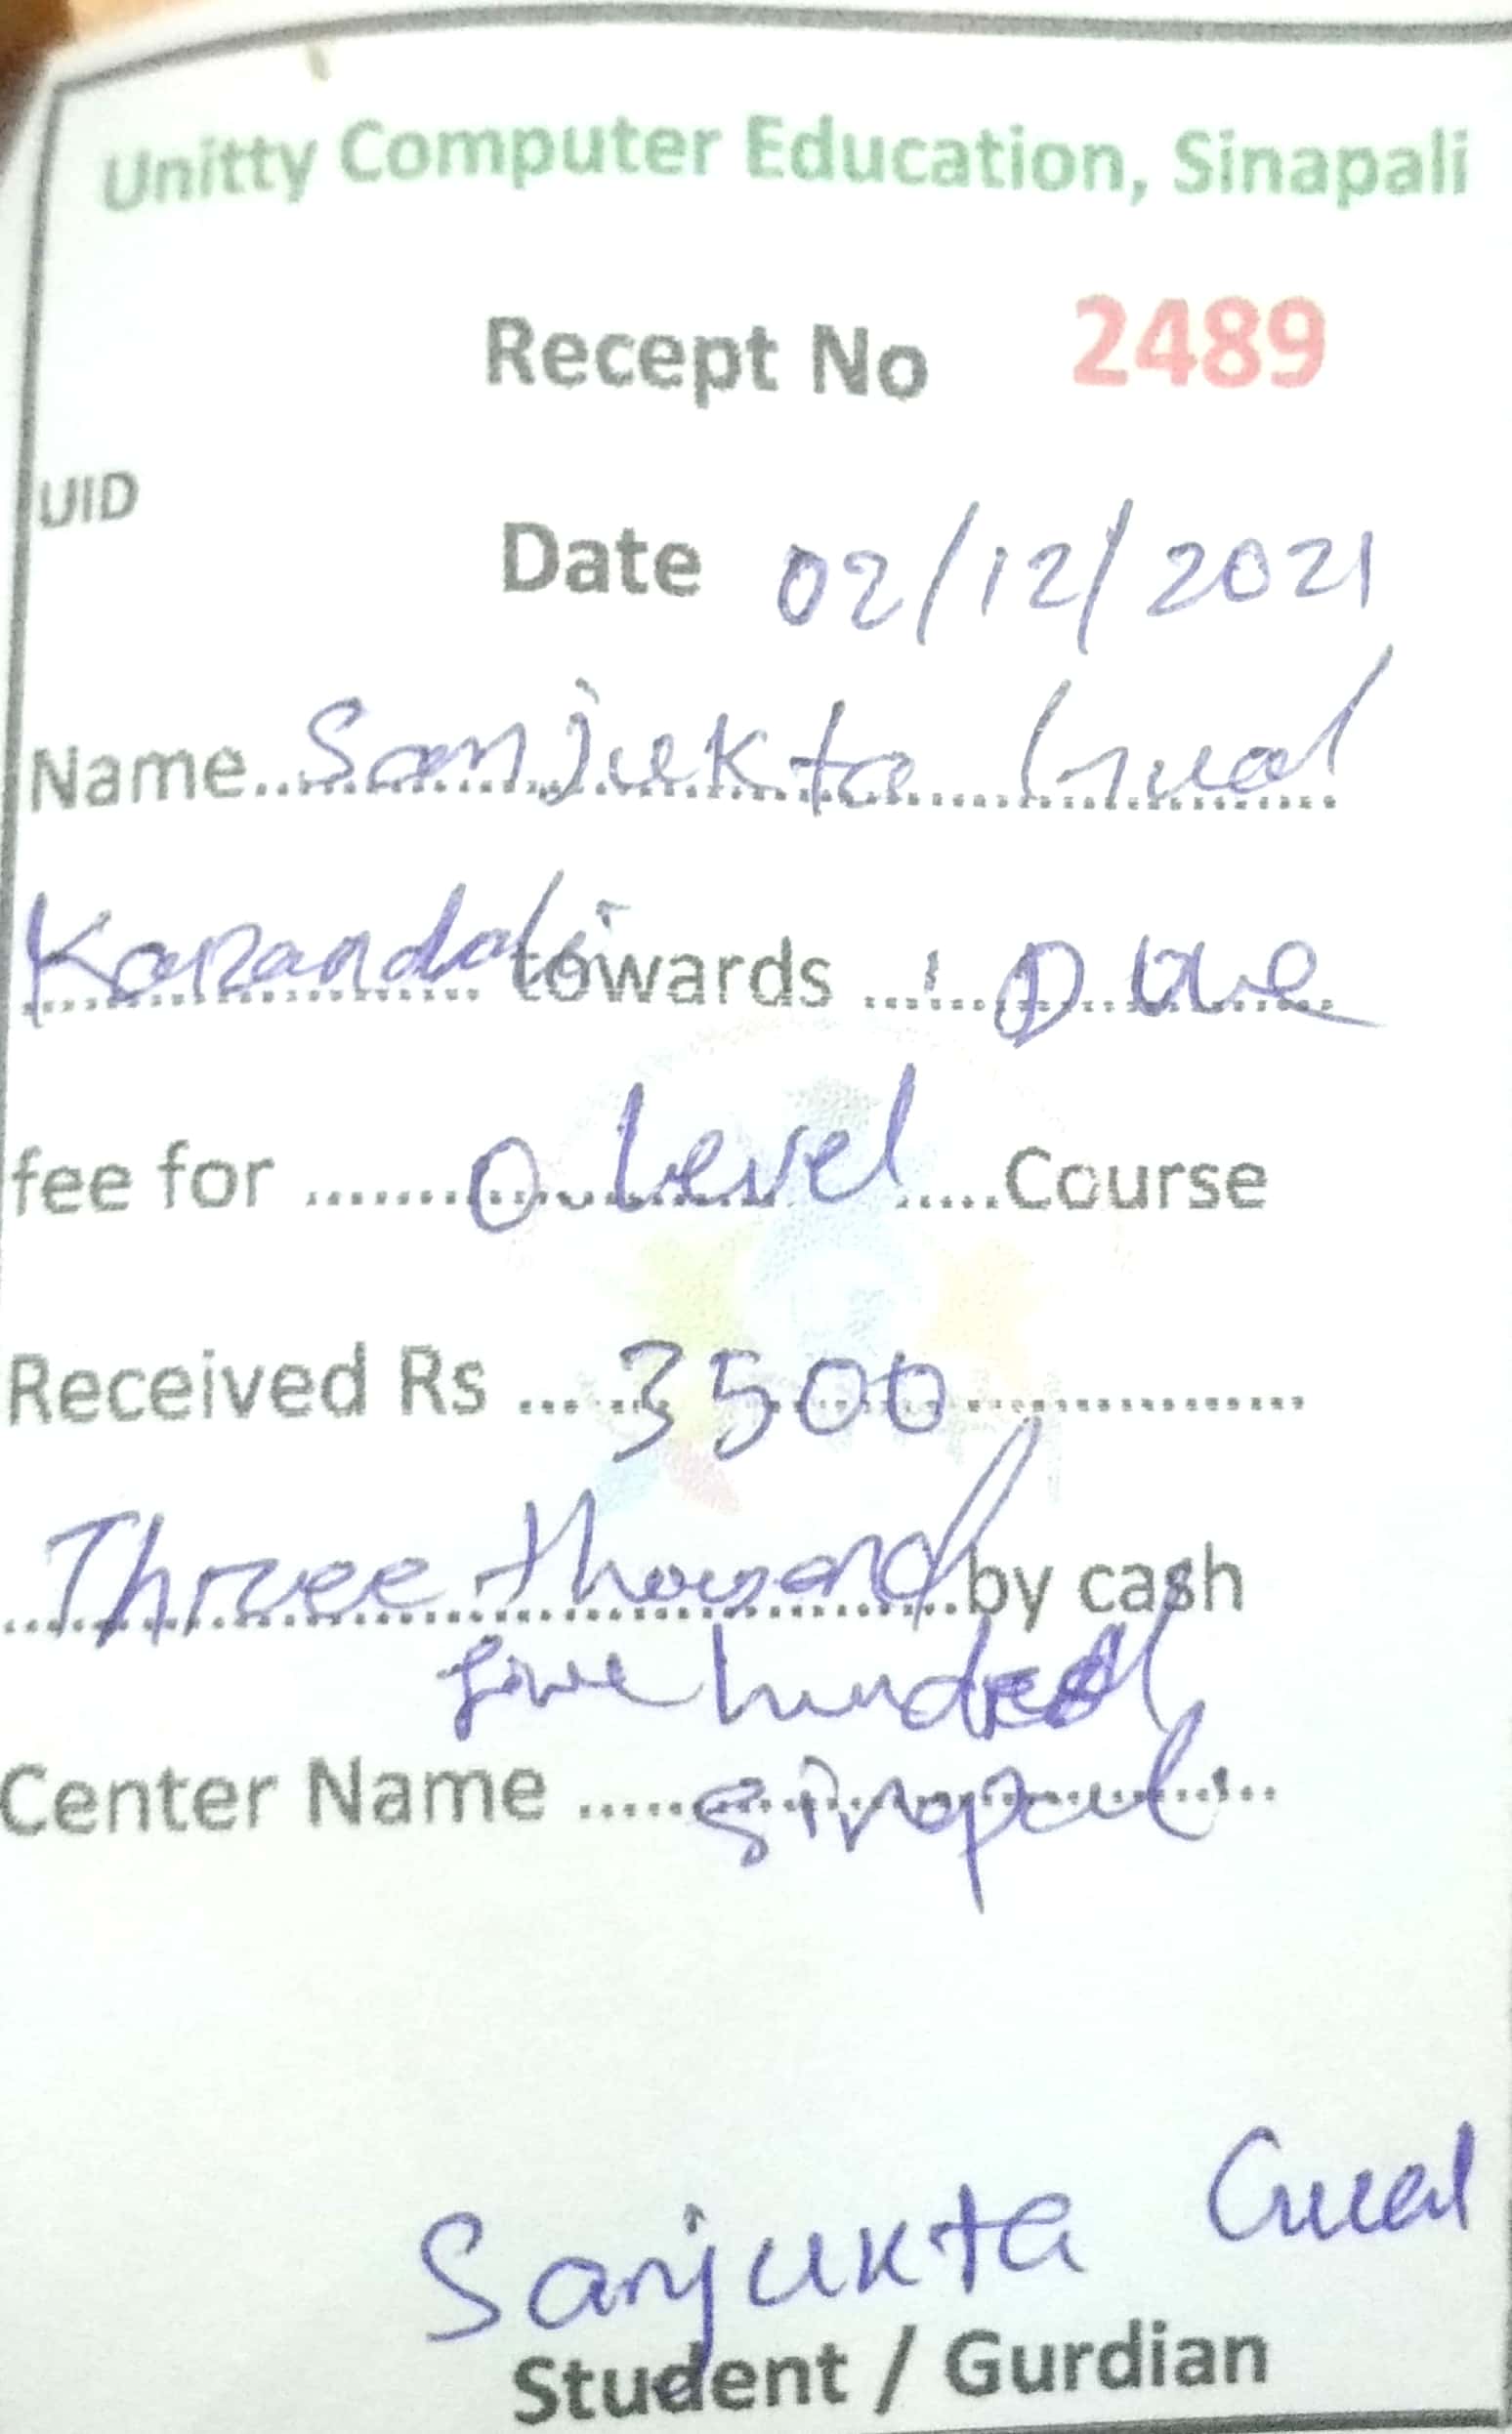 Unitty Computer Education, Sinapali
Recept No 2489
UID
Date 02/12/2021
Name Sanjukta Gual
Karandali towards Due
fee for O Level Course
Received Rs 3500
Three thousand by cash
five hundred
Center Name Sinapali
Sanjukta Gual
Student / Gurdian